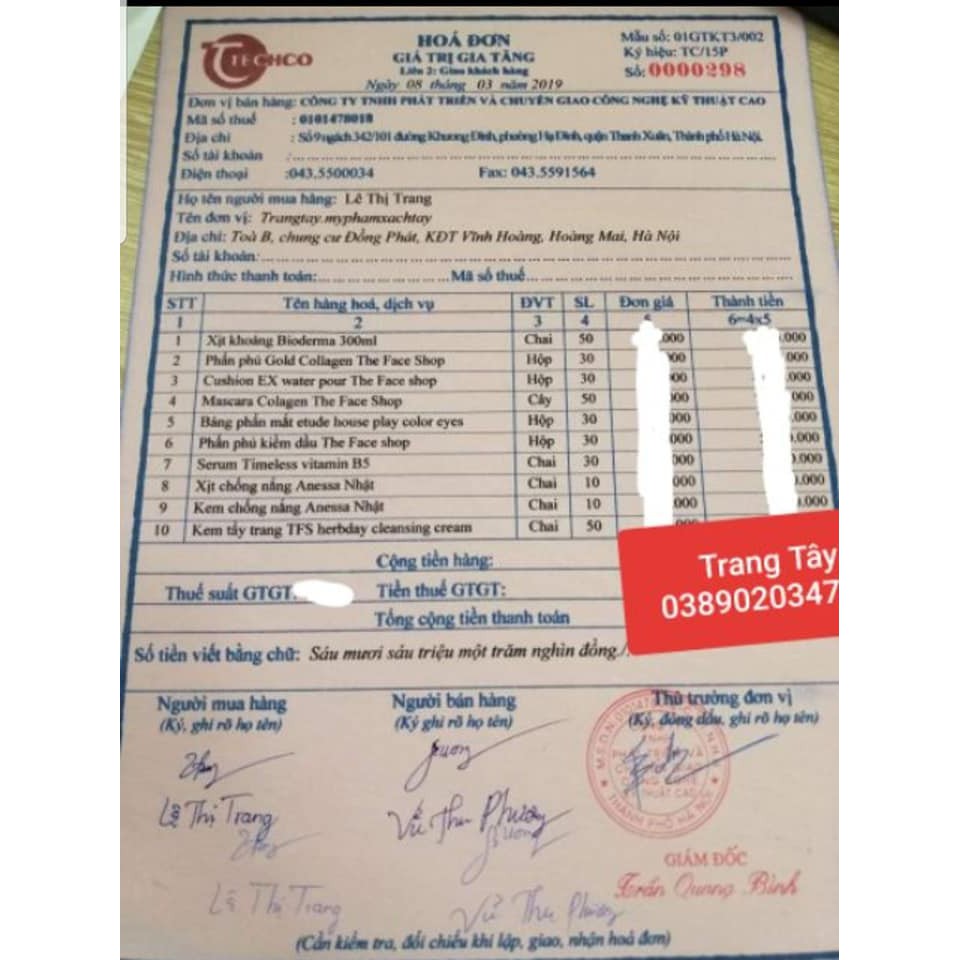 TECHCO
HOÁ ĐƠN
GIÁ TRỊ GIA TĂNG
Liên 2: Giao khách hàng
Ngày 08 tháng 03 năm 2019
Mẫu số: 01GTKT3/002
Ký hiệu: TC/15P
Số: 0000298
Đơn vị bán hàng: CÔNG TY TNHH PHÁT TRIỂN VÀ CHUYỂN GIAO CÔNG NGHỆ KỸ THUẬT CAO
Mã số thuế : 0101478018
Địa chỉ : Số 9 ngách 342/101 đường Khương Đình, phường Hạ Đình, quận Thanh Xuân, Thành phố Hà Nội.
Số tài khoản :
Điện thoại :043.5500034 Fax: 043.5591564
Họ tên người mua hàng: Lê Thị Trang
Tên đơn vị: Trangtay.myphamxachtay
Địa chỉ: Toà B, chung cư Đồng Phát, KĐT Vĩnh Hoàng, Hoàng Mai, Hà Nội
Số tài khoản:
Hình thức thanh toán: Mã số thuế
STT Tên hàng hoá, dịch vụ ĐVT SL Đơn giá Thành tiền
1 2 3 4 5 6=4x5
1 Xịt khoáng Bioderma 300ml Chai 50 .000 .000
2 Phấn phủ Gold Collagen The Face Shop Hộp 30 000 000
3 Cushion EX water pour The Face shop Hộp 30 000 .000
4 Mascara Colagen The Face Shop Cây 50 000 000
5 Bảng phấn mắt etude house play color eyes Hộp 30 000 .000
6 Phấn phủ kiềm dầu The Face shop Hộp 30 000 .000
7 Serum Timless vitamin B5 Chai 30 000 .000
8 Xịt chống nắng Anessa Nhật Chai 10 000 .000
9 Kem chống nắng Anessa Nhật Chai 10 000 .000
10 Kem tẩy trang TFS herbday cleansing cream Chai 50
Cộng tiền hàng:
Thuế suất GTGT Tiền thuế GTGT:
Tổng cộng tiền thanh toán
Trang Tây
0389020347
Số tiền viết bằng chữ: Sáu mươi sáu triệu một trăm nghìn đồng./.
Người mua hàng Người bán hàng Thủ trưởng đơn vị
(Ký, ghi rõ họ tên) (Ký ghi rõ họ tên) (Ký, đóng dấu, ghi rõ họ tên)
Lê Thị Trang Vũ Thu Phương
THÀNH PHỐ HÀ NỘI
GIÁM ĐỐC
Trần Quang Bình
Lê Thị Trang Vũ Thu Phương
(Cần kiểm tra, đối chiếu khi lập, giao, nhận hoá đơn)